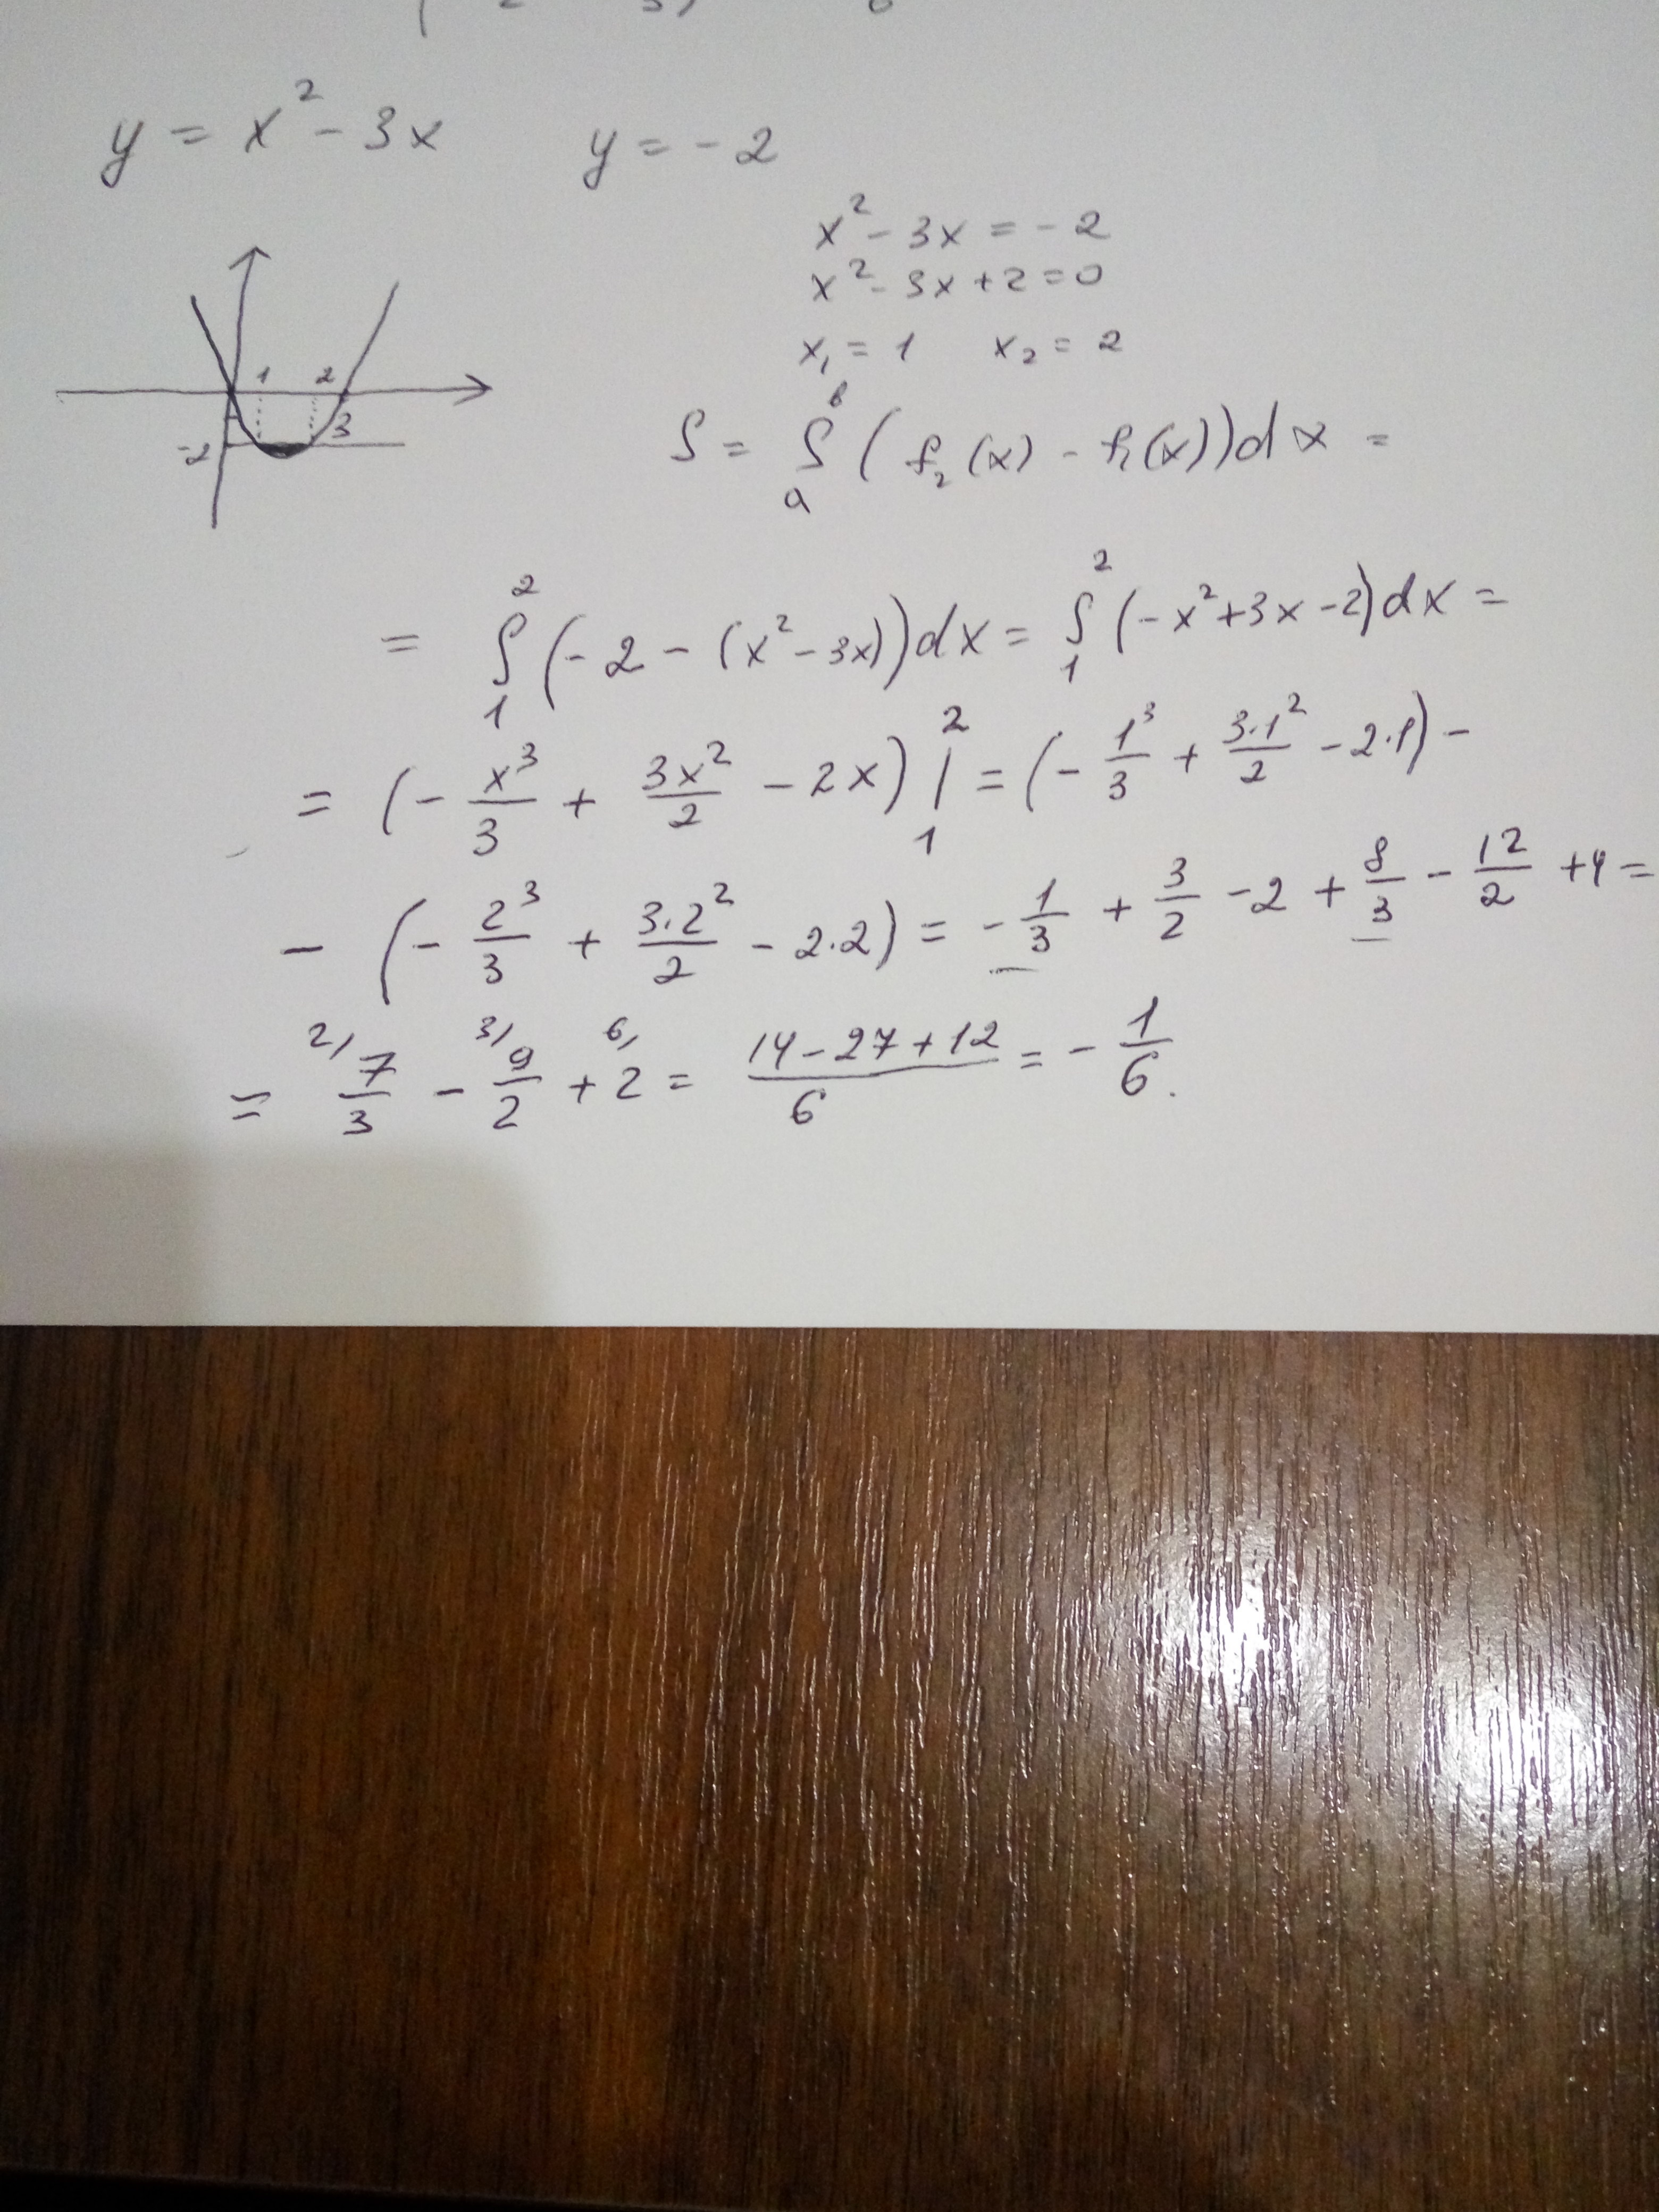 y = x² - 3x y = -2
x² - 3x = -2
x² - 3x + 2 = 0
x₁ = 1 x₂ = 2
1 2
3
-2
S = ∫ₐᵇ (f₂(x) - f₁(x))dx =
= ∫₁² (-2 - (x² - 3x))dx = ∫₁² (-x² + 3x - 2)dx =
= (- x³/3 + 3x²/2 - 2x) |₁² = (- 1³/3 + 3·1²/2 - 2·1) -
- (- 2³/3 + 3·2²/2 - 2·2) = - 1/3 + 3/2 - 2 + 8/3 - 12/2 + 4 =
= ²⁄ 7/3 - ³⁄ 9/2 + ⁶⁄ 2 = (14 - 27 + 12)/6 = - 1/6.